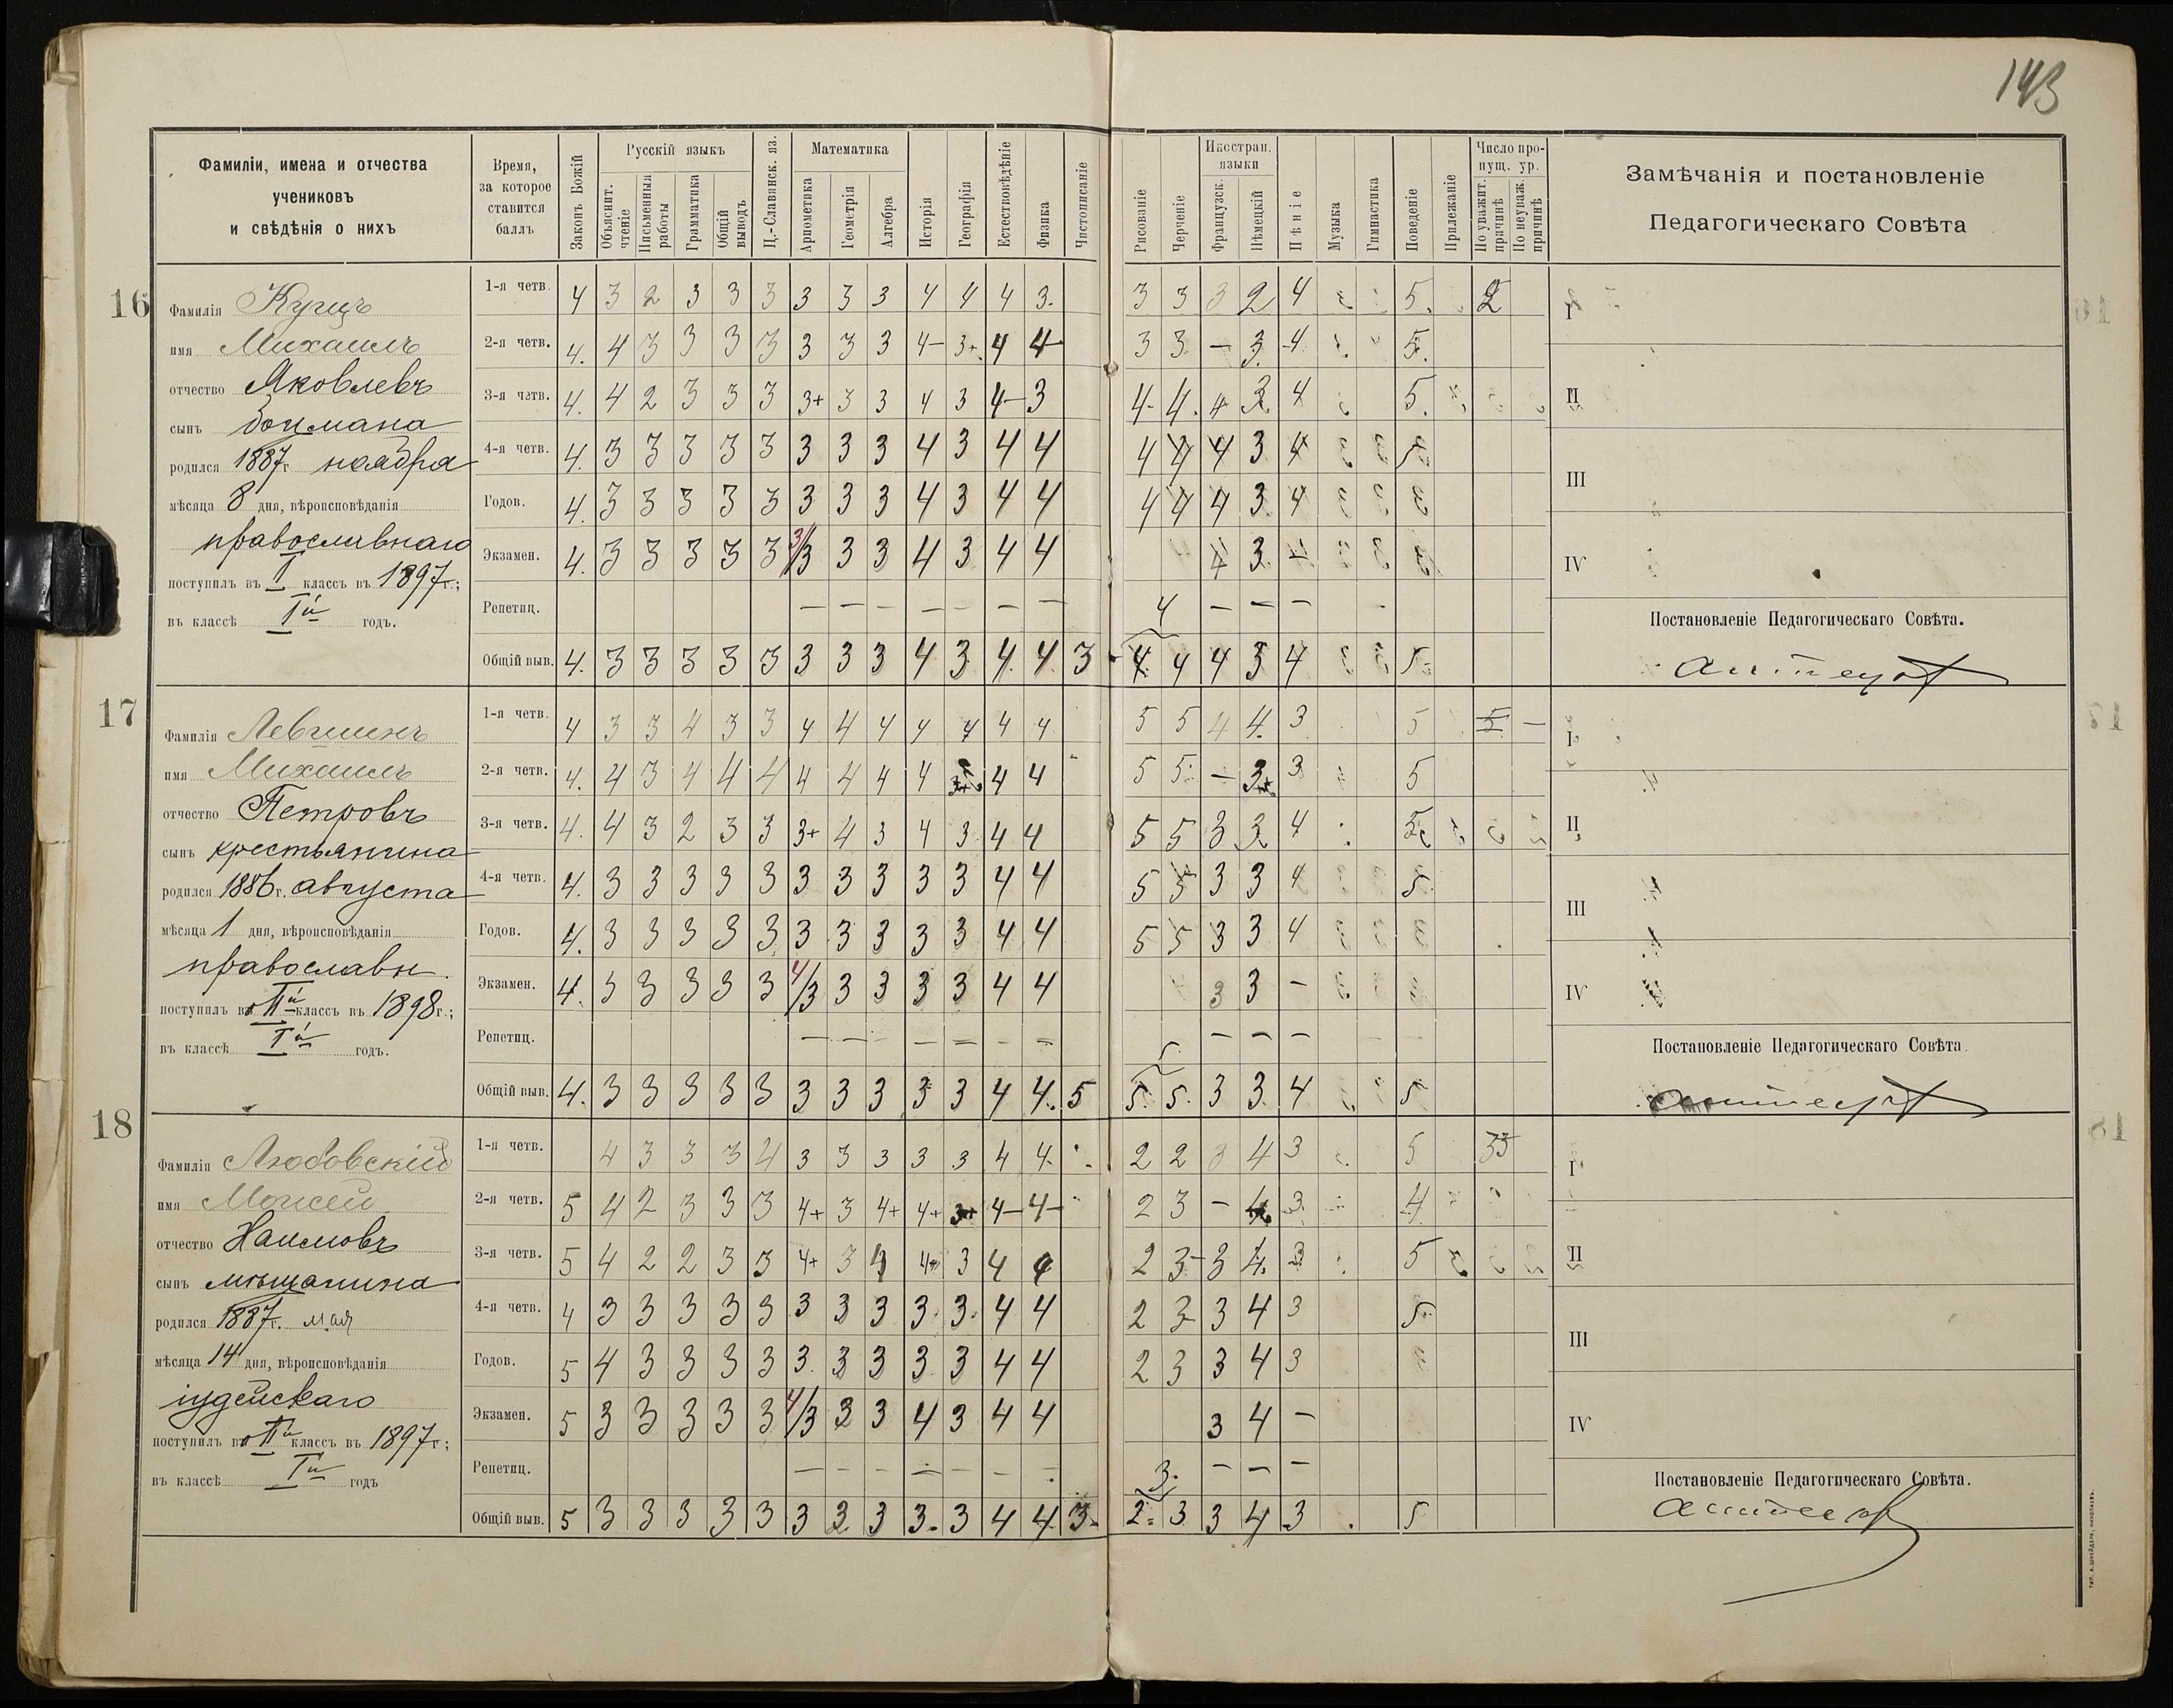 143
Фамиліи, имена и отчества
учениковъ
и свѣдѣнія о нихъ
Время,
за которое
ставится
баллъ
Законъ Божій
Русскій языкъ
Объяснит. чтеніе
Письменныя работы
Грамматика
Общій выводъ
Ц.-Славянск. яз.
Математика
Ариѳметика
Геометрія
Алгебра
Исторія
Географія
Естествовѣдѣніе
Физика
Чистописаніе
Рисованіе
Черченіе
Иностран. языки
Французск.
Нѣмецкій
Пѣніе
Музыка
Гимнастика
Поведеніе
Прилежаніе
Число пропущ. ур.
По уважит. причинѣ
По неуваж. причинѣ
Замѣчанія и постановленіе
Педагогическаго Совѣта
16
Фамилія Купецъ
имя Михаилъ
отчество Яковлевъ
сынъ боцмана
родился 1887 г. ноября
мѣсяца 8 дня, вѣроисповѣданія
православнаго
поступилъ въ I классъ въ 1897 г.;
въ классѣ Iй годъ.
1-я четв. 4 3 2 3 3 3 3 3 3 4 4 4 3. 3 3 3 2 4 5. 2
2-я четв. 4. 4 3 3 3 3 3 3 3 4- 3+. 4 4- 3 3 — 3. 4 5.
3-я четв. 4. 4 2 3 3 3 3+ 3 3 4 3 4- 3 4- 4. 4 3 4 5.
4-я четв. 4. 3 3 3 3 3 3 3 3 4 3 4 4 4 4 4 3 4 5
Годов. 4. 3 3 3 3 3 3 3 3 4 3 4 4 4 4 4 3 4
Экзамен. 4. 3 3 3 3 3 3/3 3 3 4 3 4 4 4 3 —
Репетиц. — — — — — — — 4 — — —
Общій выв. 4. 3 3 3 3 3 3 3 3 4 3 4. 4 3 4. 4 4 3 4 5
I
II
III
IV
Постановленіе Педагогическаго Совѣта.
17
Фамилія Левшинъ
имя Михаилъ
отчество Петровъ
сынъ крестьянина
родился 1886 г. августа
мѣсяца 1 дня, вѣроисповѣданія
православн.
поступилъ во IIй классъ въ 1898 г.;
въ классѣ Iй годъ.
1-я четв. 4 3 3 4 3 3 4 4 4 4 4 4 4 5 5 4 4. 3 5 5 —
2-я четв. 4. 4 3 4 4 4 4 4 4 4 4 4 5 5 — 3+ 3 5
3-я четв. 4. 4 3 2 3 3 3+ 4 3 4 3 4 4 5 5 3 3 4 5
4-я четв. 4. 3 3 3 3 3 3 3 3 3 3 4 4 5 5 3 3 4 5
Годов. 4. 3 3 3 3 3 3 3 3 3 3 4 4 5 5 3 3 4
Экзамен. 4. 3 3 3 3 3 4/3 3 3 3 3 4 4 3 3 —
Репетиц. — — — — — — — 5. — — —
Общій выв. 4. 3 3 3 3 3 3 3 3 3 3 4 4. 5 5. 5. 3 3 4 5
I
II
III
IV
Постановленіе Педагогическаго Совѣта.
18
Фамилія Любовскій
имя Моисей
отчество Наимовъ
сынъ мѣщанина
родился 1887 г. мая
мѣсяца 14 дня, вѣроисповѣданія
іудейскаго
поступилъ во IIй классъ въ 1897 г.;
въ классѣ Iй годъ
1-я четв. 4 3 3 3 4 3 3 3 3 3 4 4. 2 2 3 4 3 5 33
2-я четв. 5 4 2 3 3 3 4+ 3 4+ 4+ 3+ 4- 4- 2 3 — 4 3 4
3-я четв. 5 4 2 2 3 3 4+ 3 4 4+ 3 4 4 2 3- 3 4. 3 5
4-я четв. 4 3 3 3 3 3 3 3 3 3. 3. 4 4 2 3 3 4 3 5
Годов. 5 4 3 3 3 3 3. 3 3 3 3 4 4 2 3 3 4 3
Экзамен. 5 3 3 3 3 3 4/3 3 3 4 3 4 4 3 4 —
Репетиц. — — — — — — — 3. — — —
Общій выв. 5 3 3 3 3 3 3 3 3 3. 3 4 4. 3 2. 3 3 4 3 5
I
II
III
IV
Постановленіе Педагогическаго Совѣта.
ТИП. А. ШНЕЙДЕРА, НИКОЛАЕВЪ.